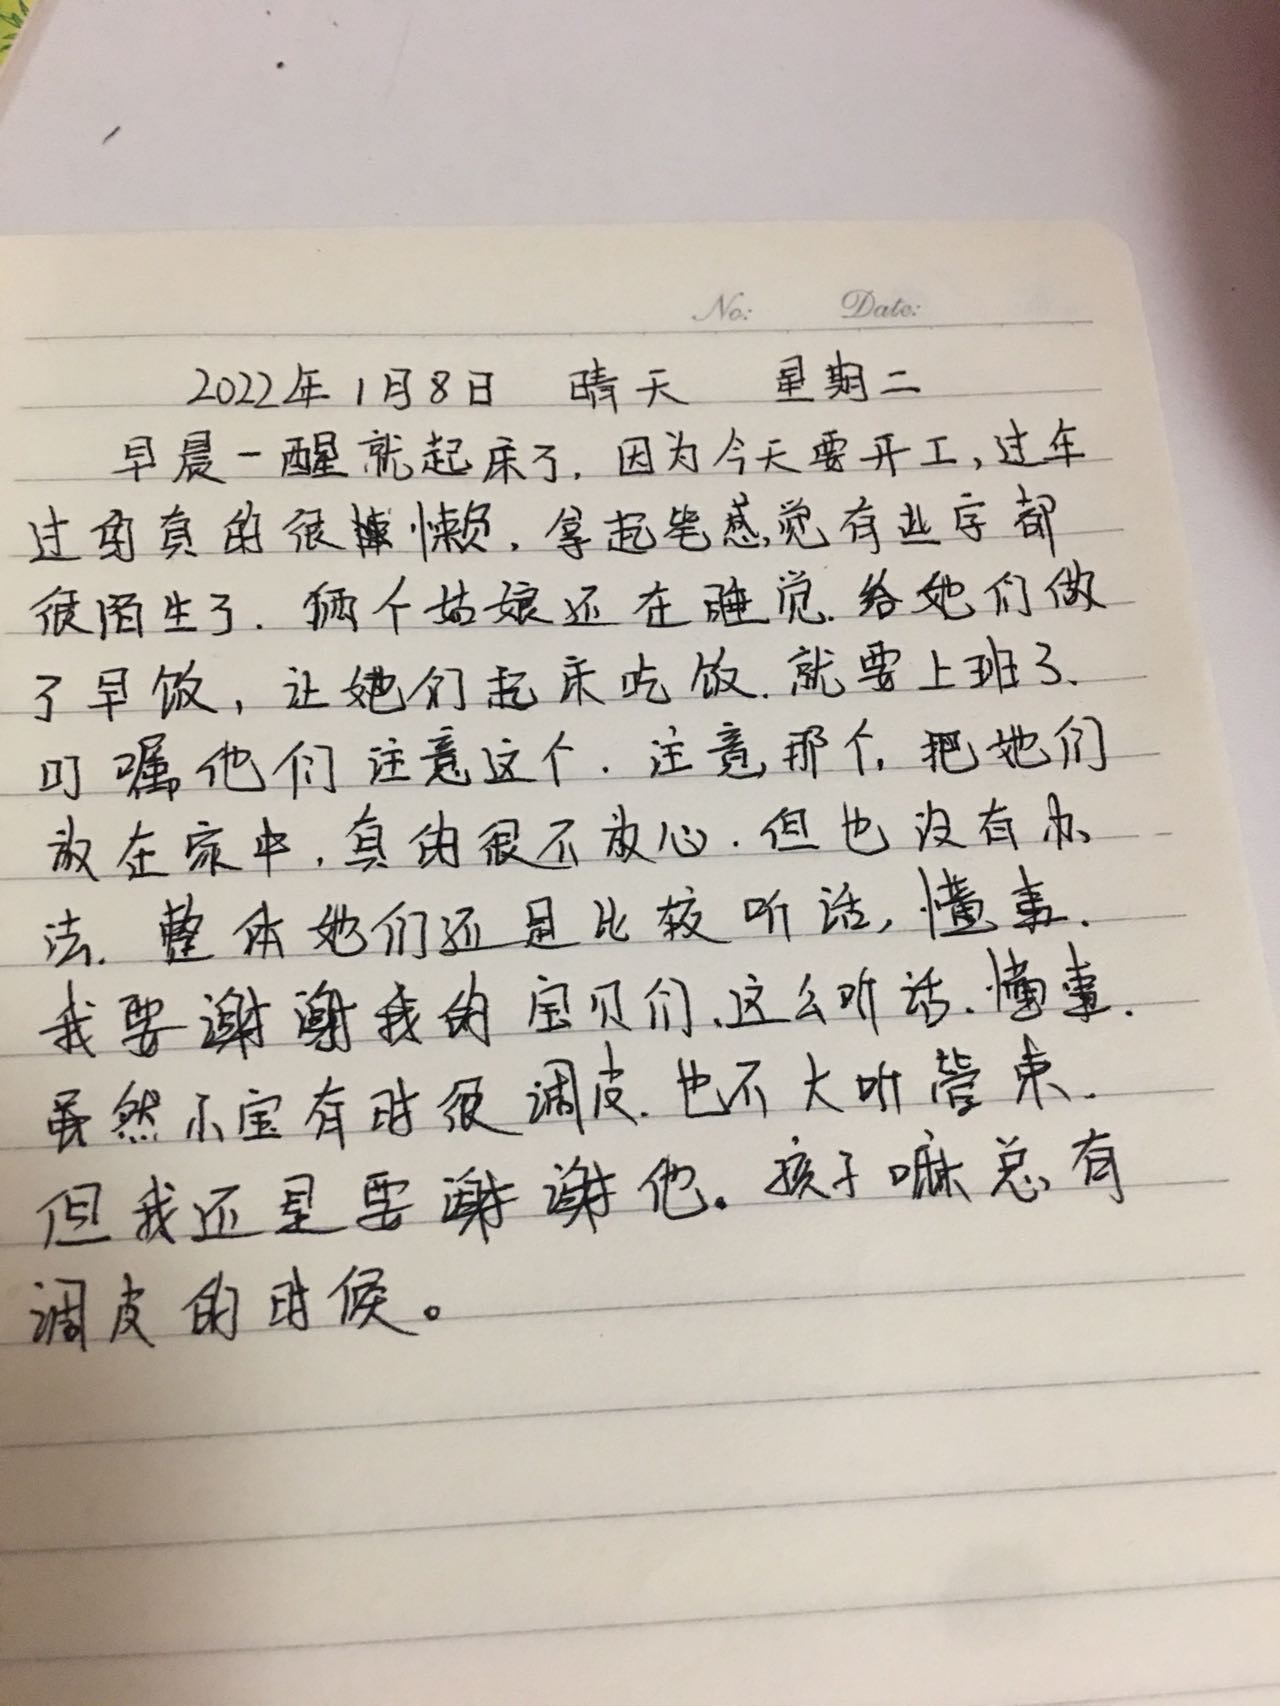 No: Date:
2022年1月8日 晴天 星期二
早晨一醒就起床了.因为今天要开工,过年
过的真的很懒.拿起笔感觉有些字都
很陌生了.俩个姑娘还在睡觉.给她们做
了早饭,让她们起床吃饭.就要上班了.
叮嘱他们注意这个.注意那个,把她们
放在家中.真的很不放心.但也没有办
法.整体她们还是比较听话,懂事.
我要谢谢我的宝贝们.这么听话.懂事.
虽然小宝有时很调皮.也不大听管束.
但我还是要谢谢他。孩子嘛总有
调皮的时候。